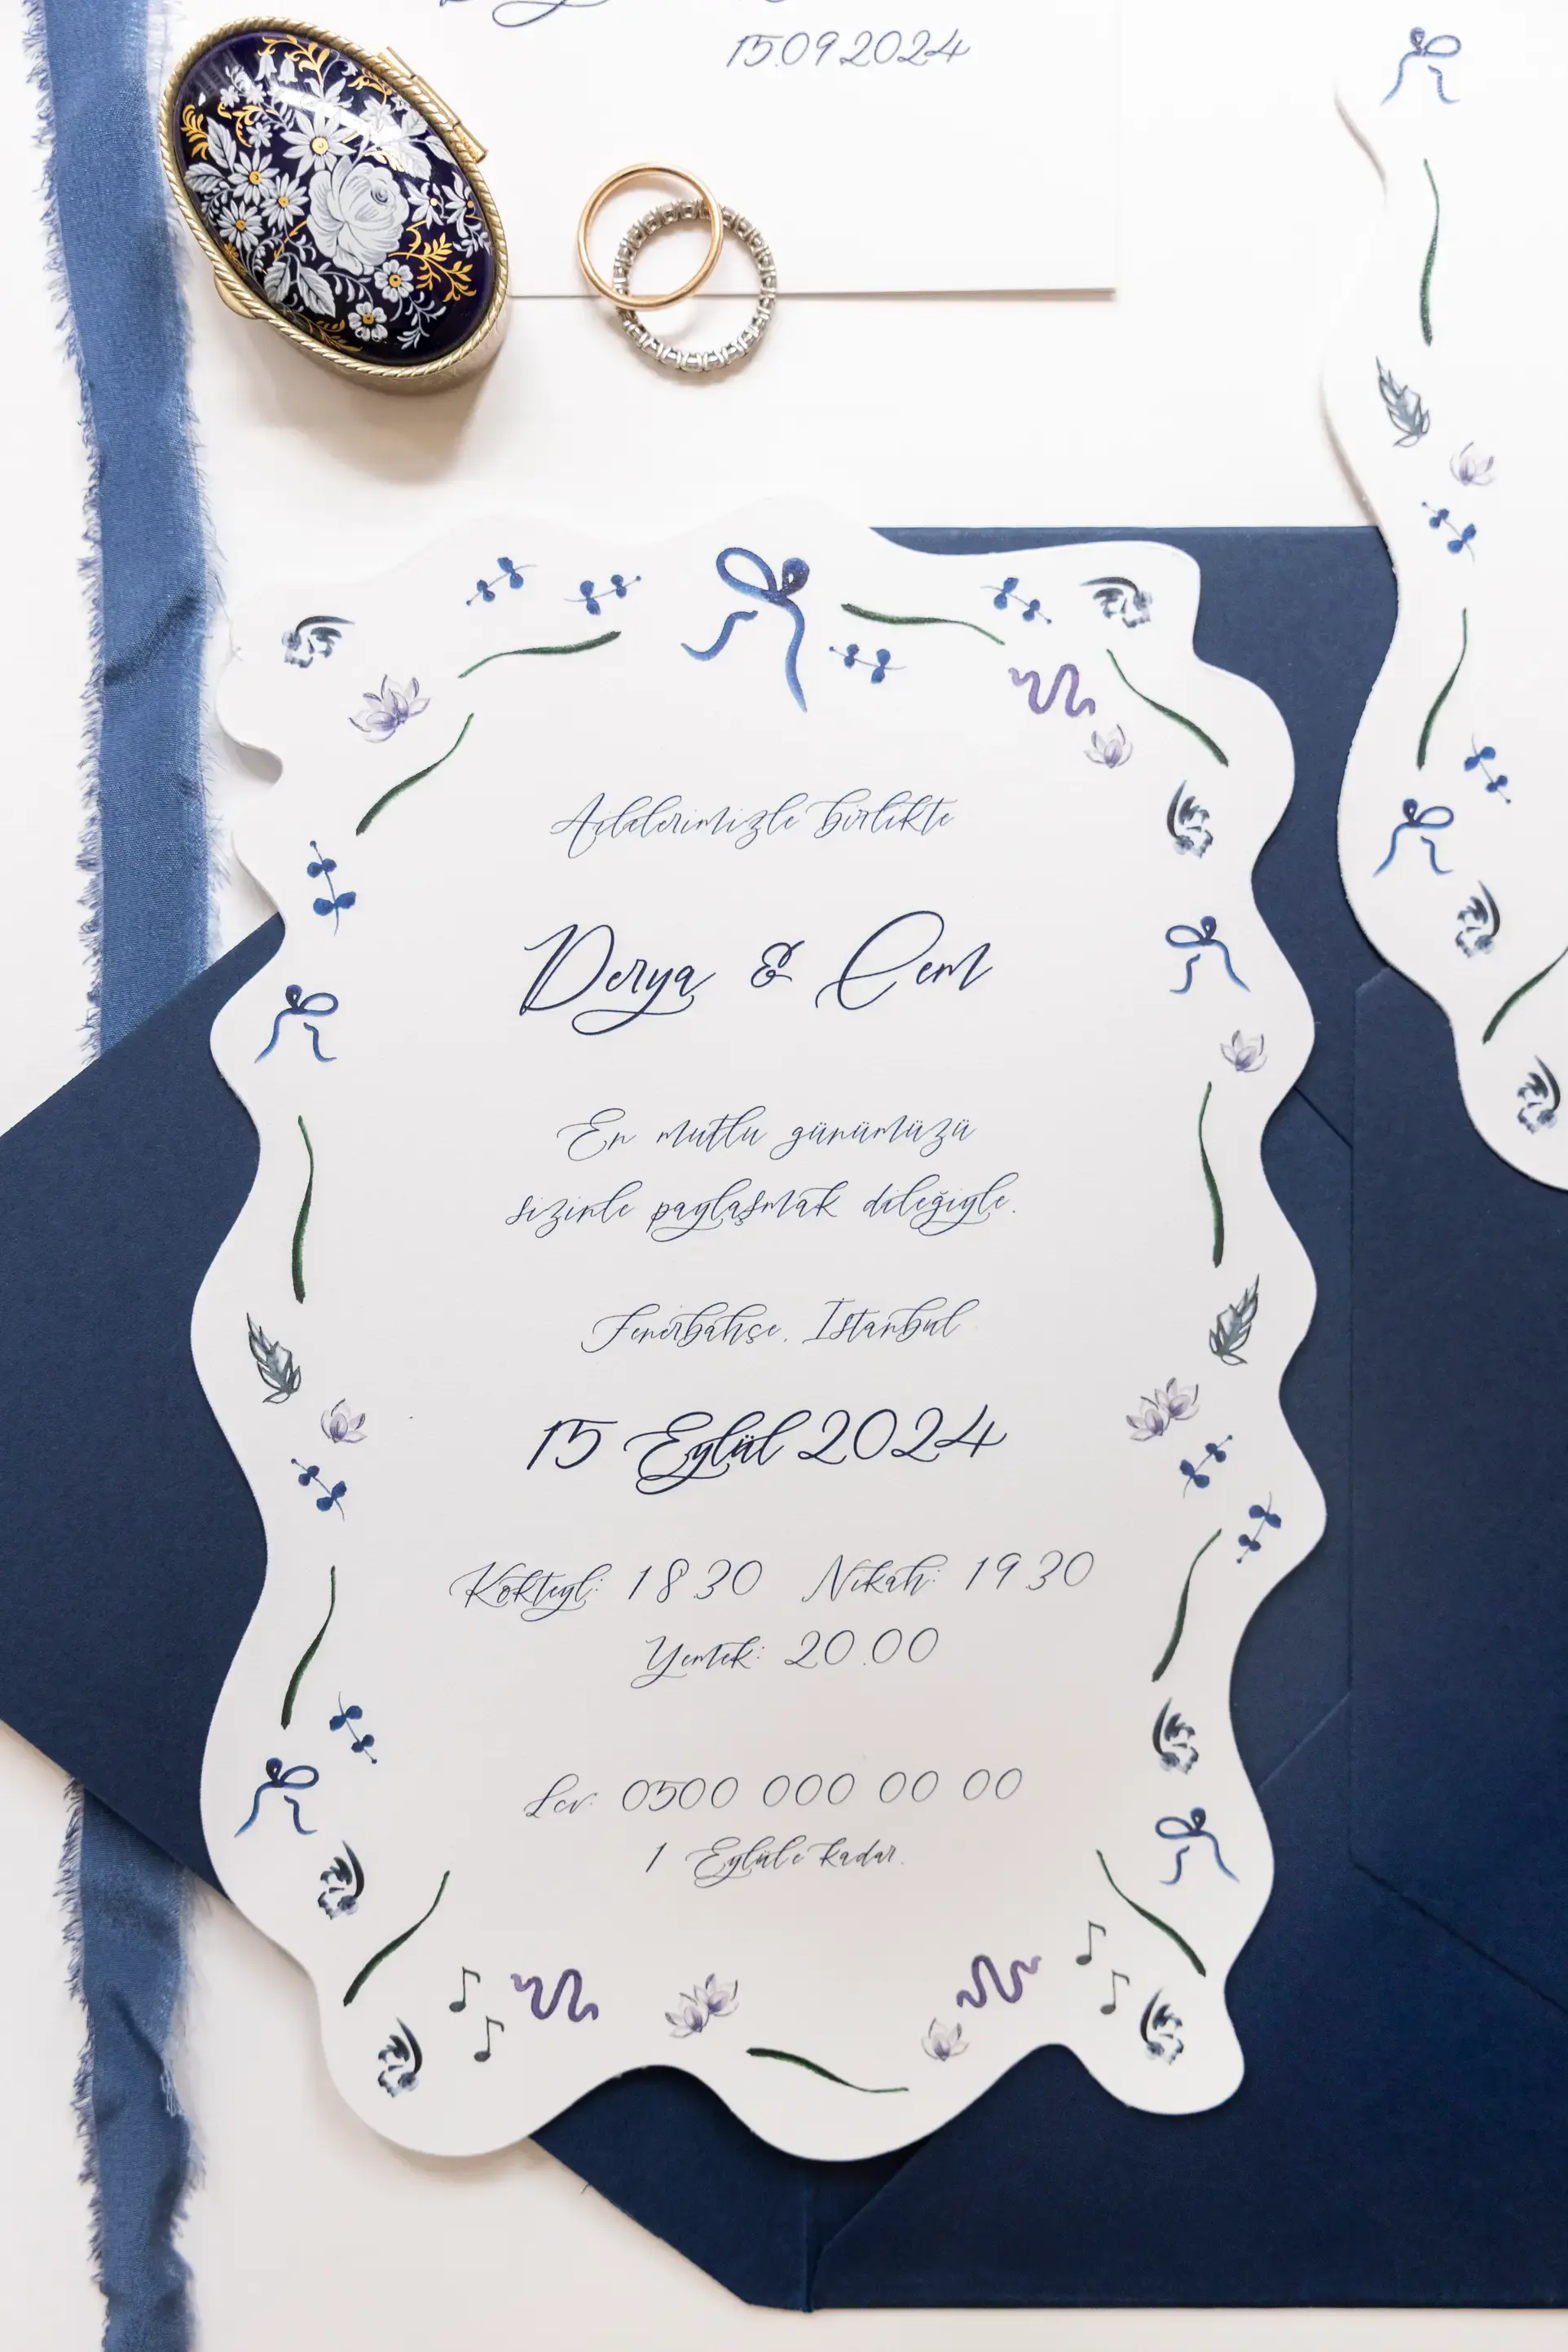 15.09.2024
Ailelerimizle birlikte
Derya & Cem
En mutlu günümüzü
sizinle paylaşmak dileğiyle.
Fenerbahçe, İstanbul
15 Eylül 2024
Kokteyl: 18.30 Nikah: 19.30
Yemek: 20.00
Lcv: 0500 000 00 00
1 Eylül'e kadar.